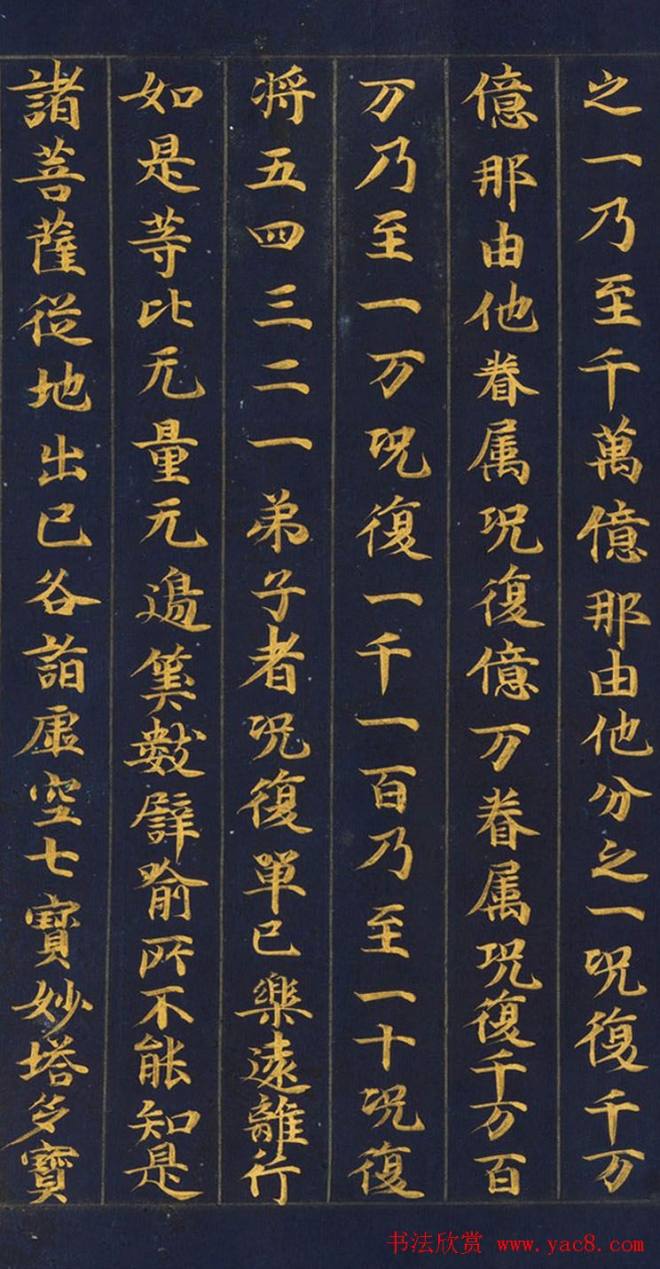 之一乃至千萬億那由他分之一呪復千万
億那由他眷属呪復億万眷属呪復千万百
万乃至一万呪復一千一百乃至一十呪復
将五四三二一弟子者呪復單已樂遠離行
如是等比无量无邊筭數譬喻所不能知是
諸菩薩從地出已各詣虚空七寶妙塔多寶
书法欣赏 www.yac8.com